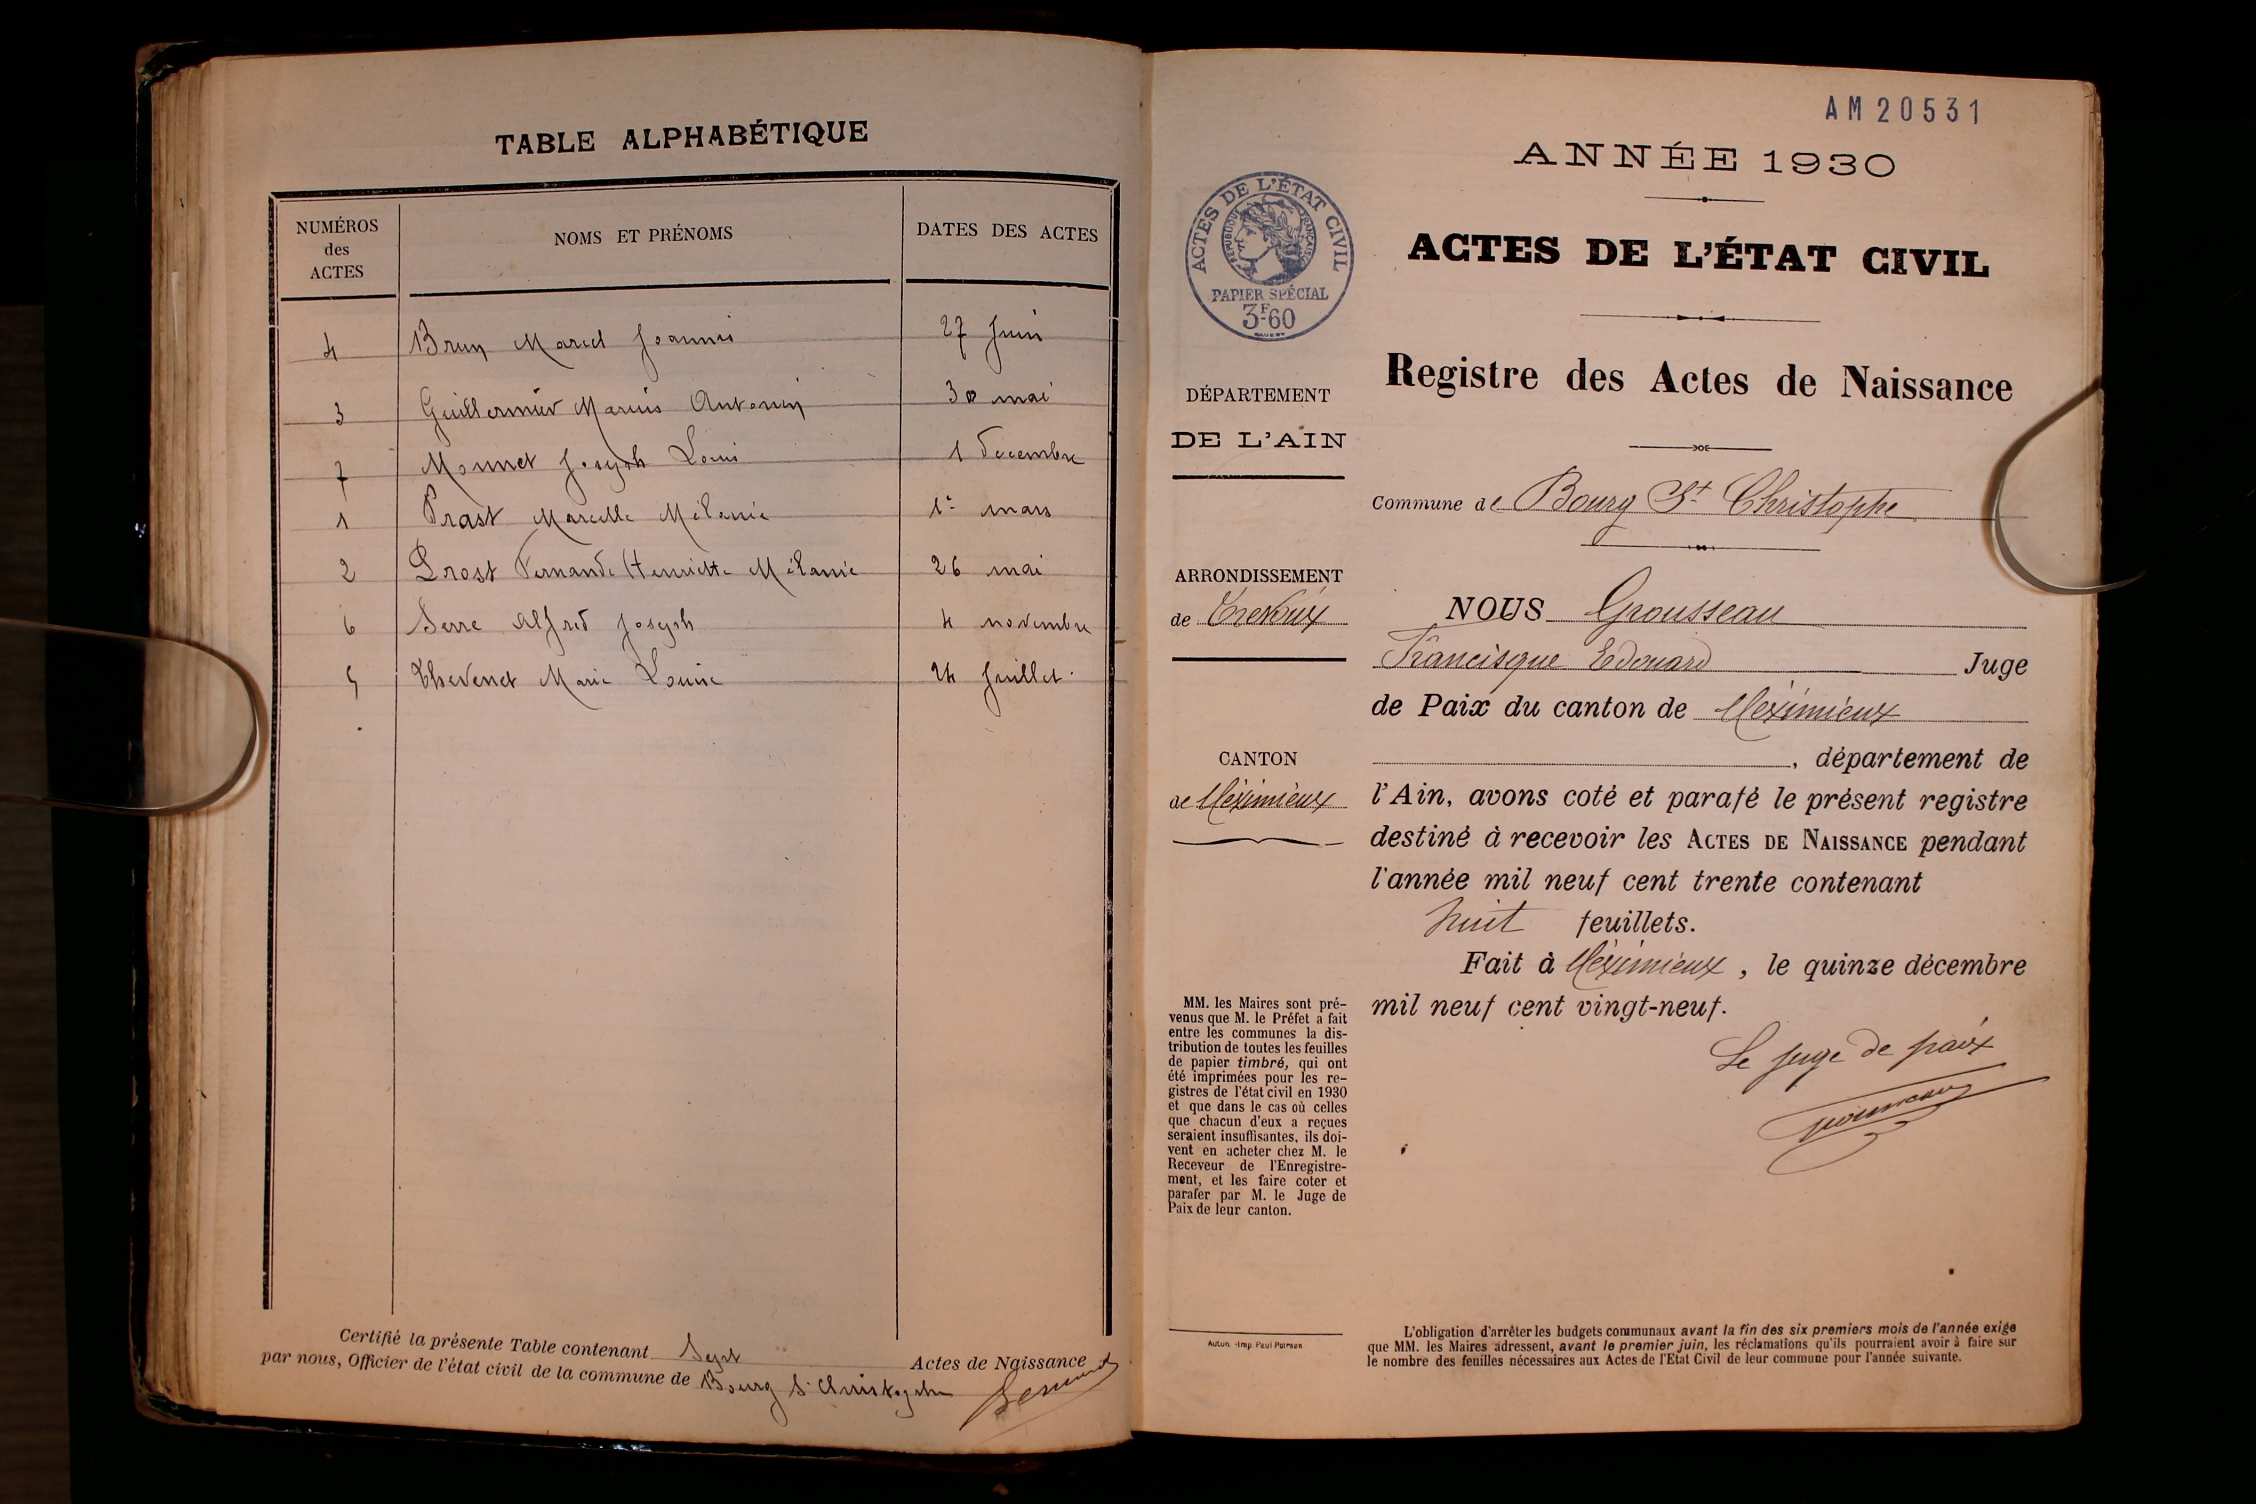 TABLE ALPHABÉTIQUE
NUMÉROS des ACTES NOMS ET PRÉNOMS DATES DES ACTES
4 Brun Marcel Joannis 27 Juin
3 Guillermier Marius Antonin 30 mai
7 Monnet Joseph Louis 1 Decembre
1 Prast Marcelle Mélanie 1er mars
2 Prost Fernande Henriette Mélanie 26 mai
6 Serre Alfred Joseph 4 novembre
5 Thevenet Marie Louise 24 Juillet
Certifié la présente Table contenant Sept Actes de Naissance
par nous, Officier de l'état civil de la commune de Bourg St Christophe
AM20531
ANNÉE 1930
ACTES DE L'ÉTAT CIVIL
Registre des Actes de Naissance
ACTES DE L'ÉTAT CIVIL
RÉPUBLIQUE FRANÇAISE
PAPIER SPÉCIAL
3F60
DÉPARTEMENT
DE L'AIN
ARRONDISSEMENT
de Trévoux
CANTON
de Méximieux
MM. les Maires sont pré-
venus que M. le Préfet a fait
entre les communes la dis-
tribution de toutes les feuilles
de papier timbré, qui ont
été imprimées pour les re-
gistres de l'état civil en 1930
et que dans le cas où celles
que chacun d'eux a reçues
seraient insuffisantes, ils doi-
vent en acheter chez M. le
Receveur de l'Enregistre-
ment, et les faire coter et
parafer par M. le Juge de
Paix de leur canton.
Autun. -Imp. Paul Pernan
Commune de Bourg St Christophe
NOUS Grousseau
Francisque Edouard Juge
de Paix du canton de Méximieux
, département de
l'Ain, avons coté et parafé le présent registre
destiné à recevoir les ACTES DE NAISSANCE pendant
l'année mil neuf cent trente contenant
huit feuillets.
Fait à Méximieux, le quinze décembre
mil neuf cent vingt-neuf.
Le Juge de paix
L'obligation d'arrêter les budgets communaux avant la fin des six premiers mois de l'année exige
que MM. les Maires adressent, avant le premier juin, les réclamations qu'ils pourraient avoir à faire sur
le nombre des feuilles nécessaires aux Actes de l'Etat Civil de leur commune pour l'année suivante.